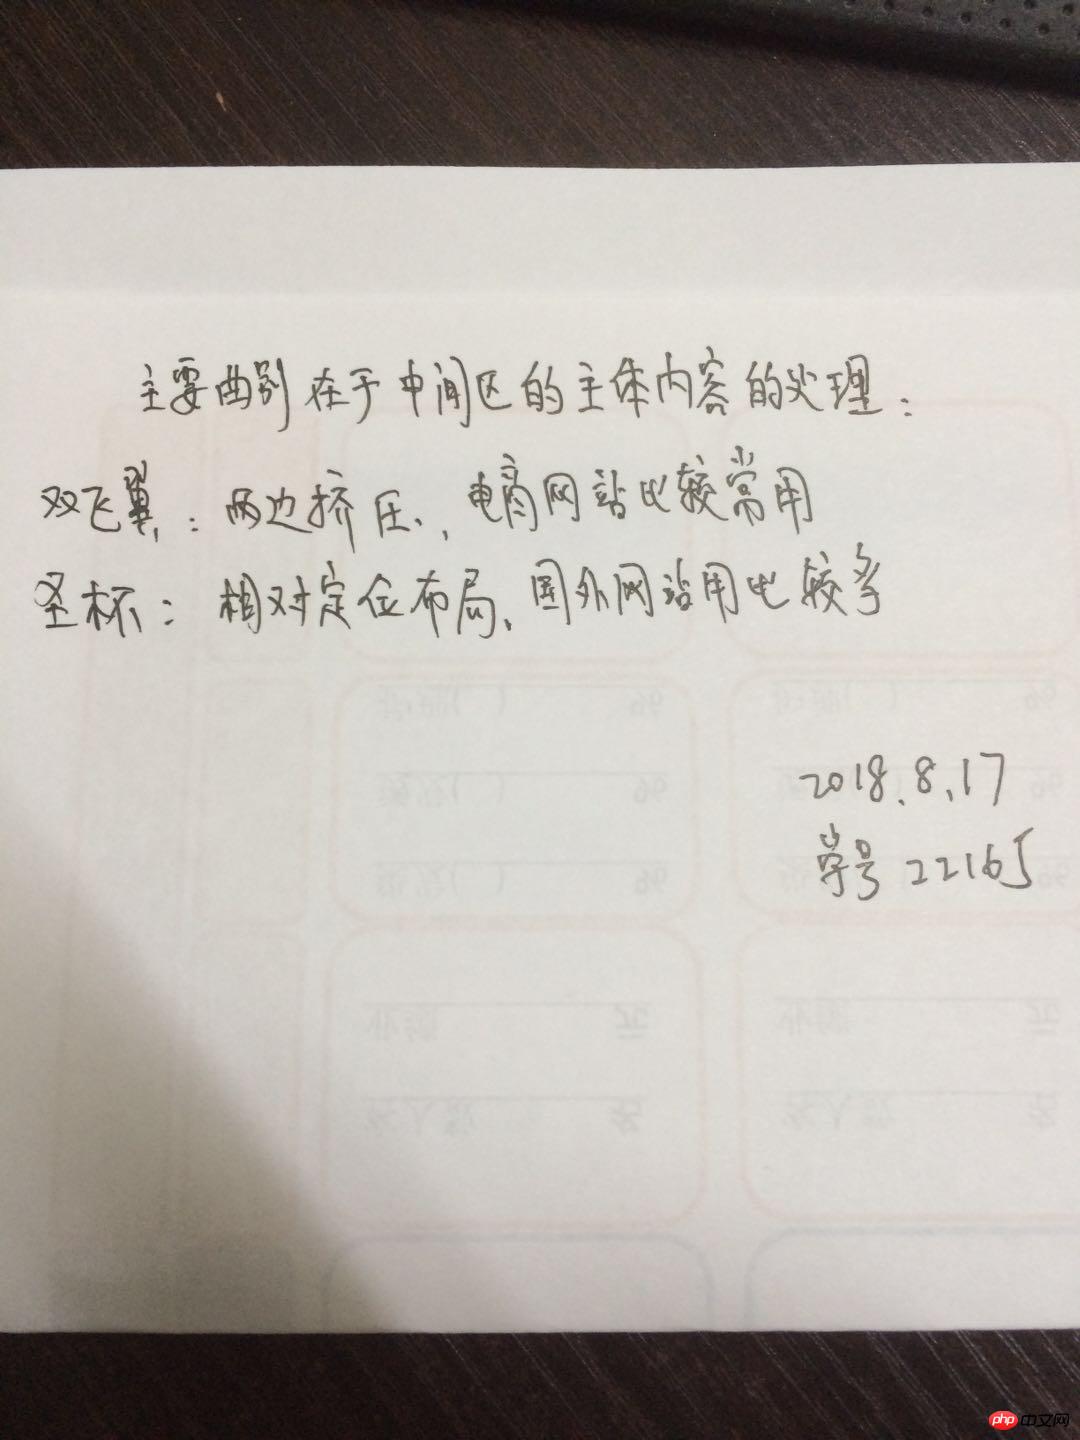 主要曲别在于中间区的主体内容的处理：
双飞翼：两边挤压、，电商网站比较常用
圣杯：相对定位布局、国外网站用比较多
2018.8.17
学号 22165
php 中文网